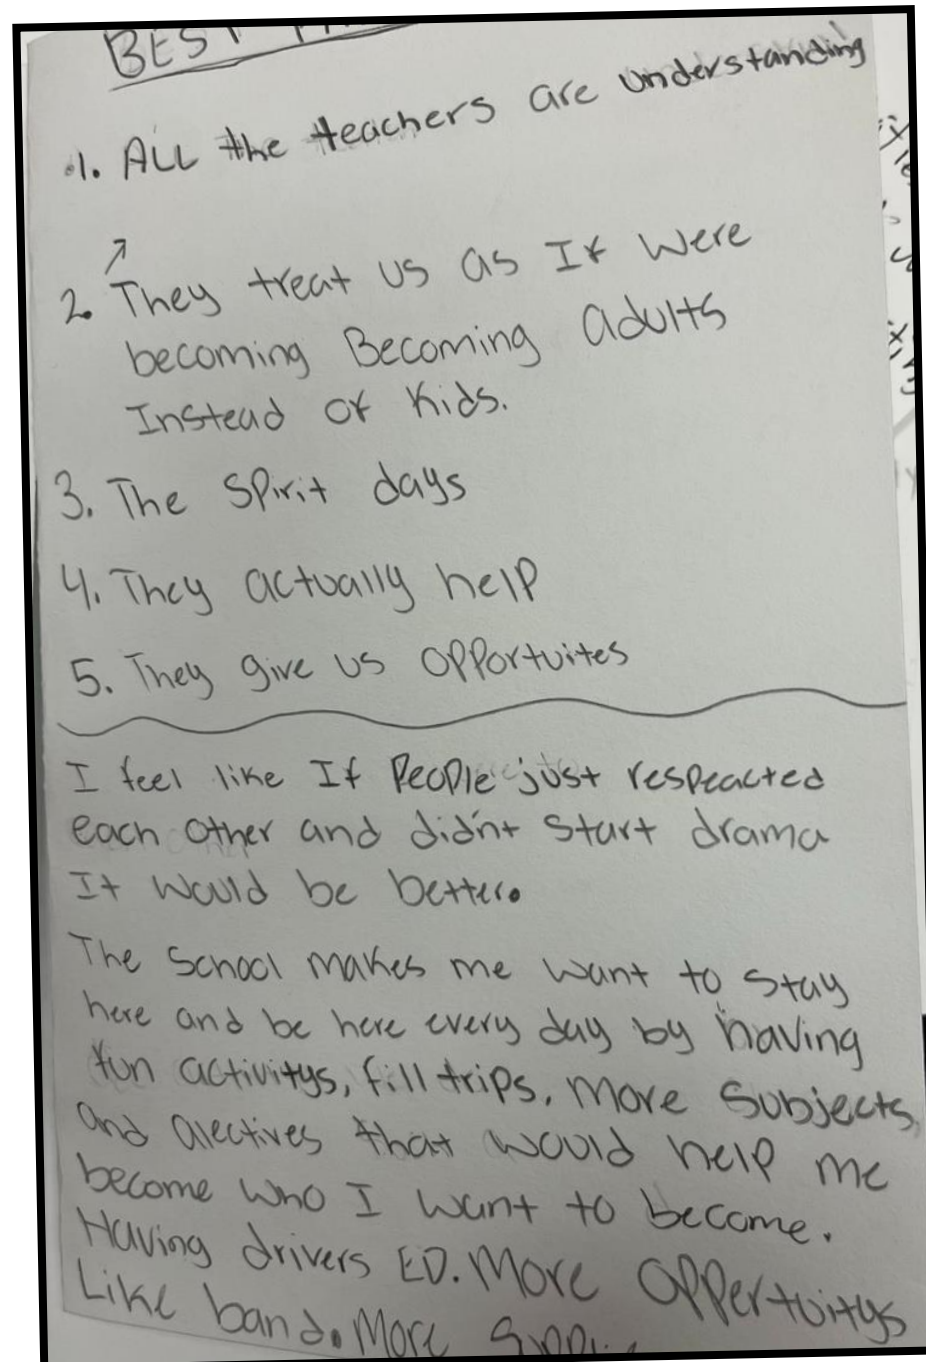 BEST
1. ALL the teachers are understanding
2. They treat us as If were
becoming Becoming adults
Instead of Kids.
3. The Spirit days
4. They actually help
5. They give us opportuites
I feel like If People just respeacted
each other and didn't start drama
It would be better.
The School makes me want to stay
here and be here every day by having
fun activitys, fill trips, More Subjects,
and alectives that would help me
become who I want to become.
Having drivers ED. More oppertuitys
Like band. More